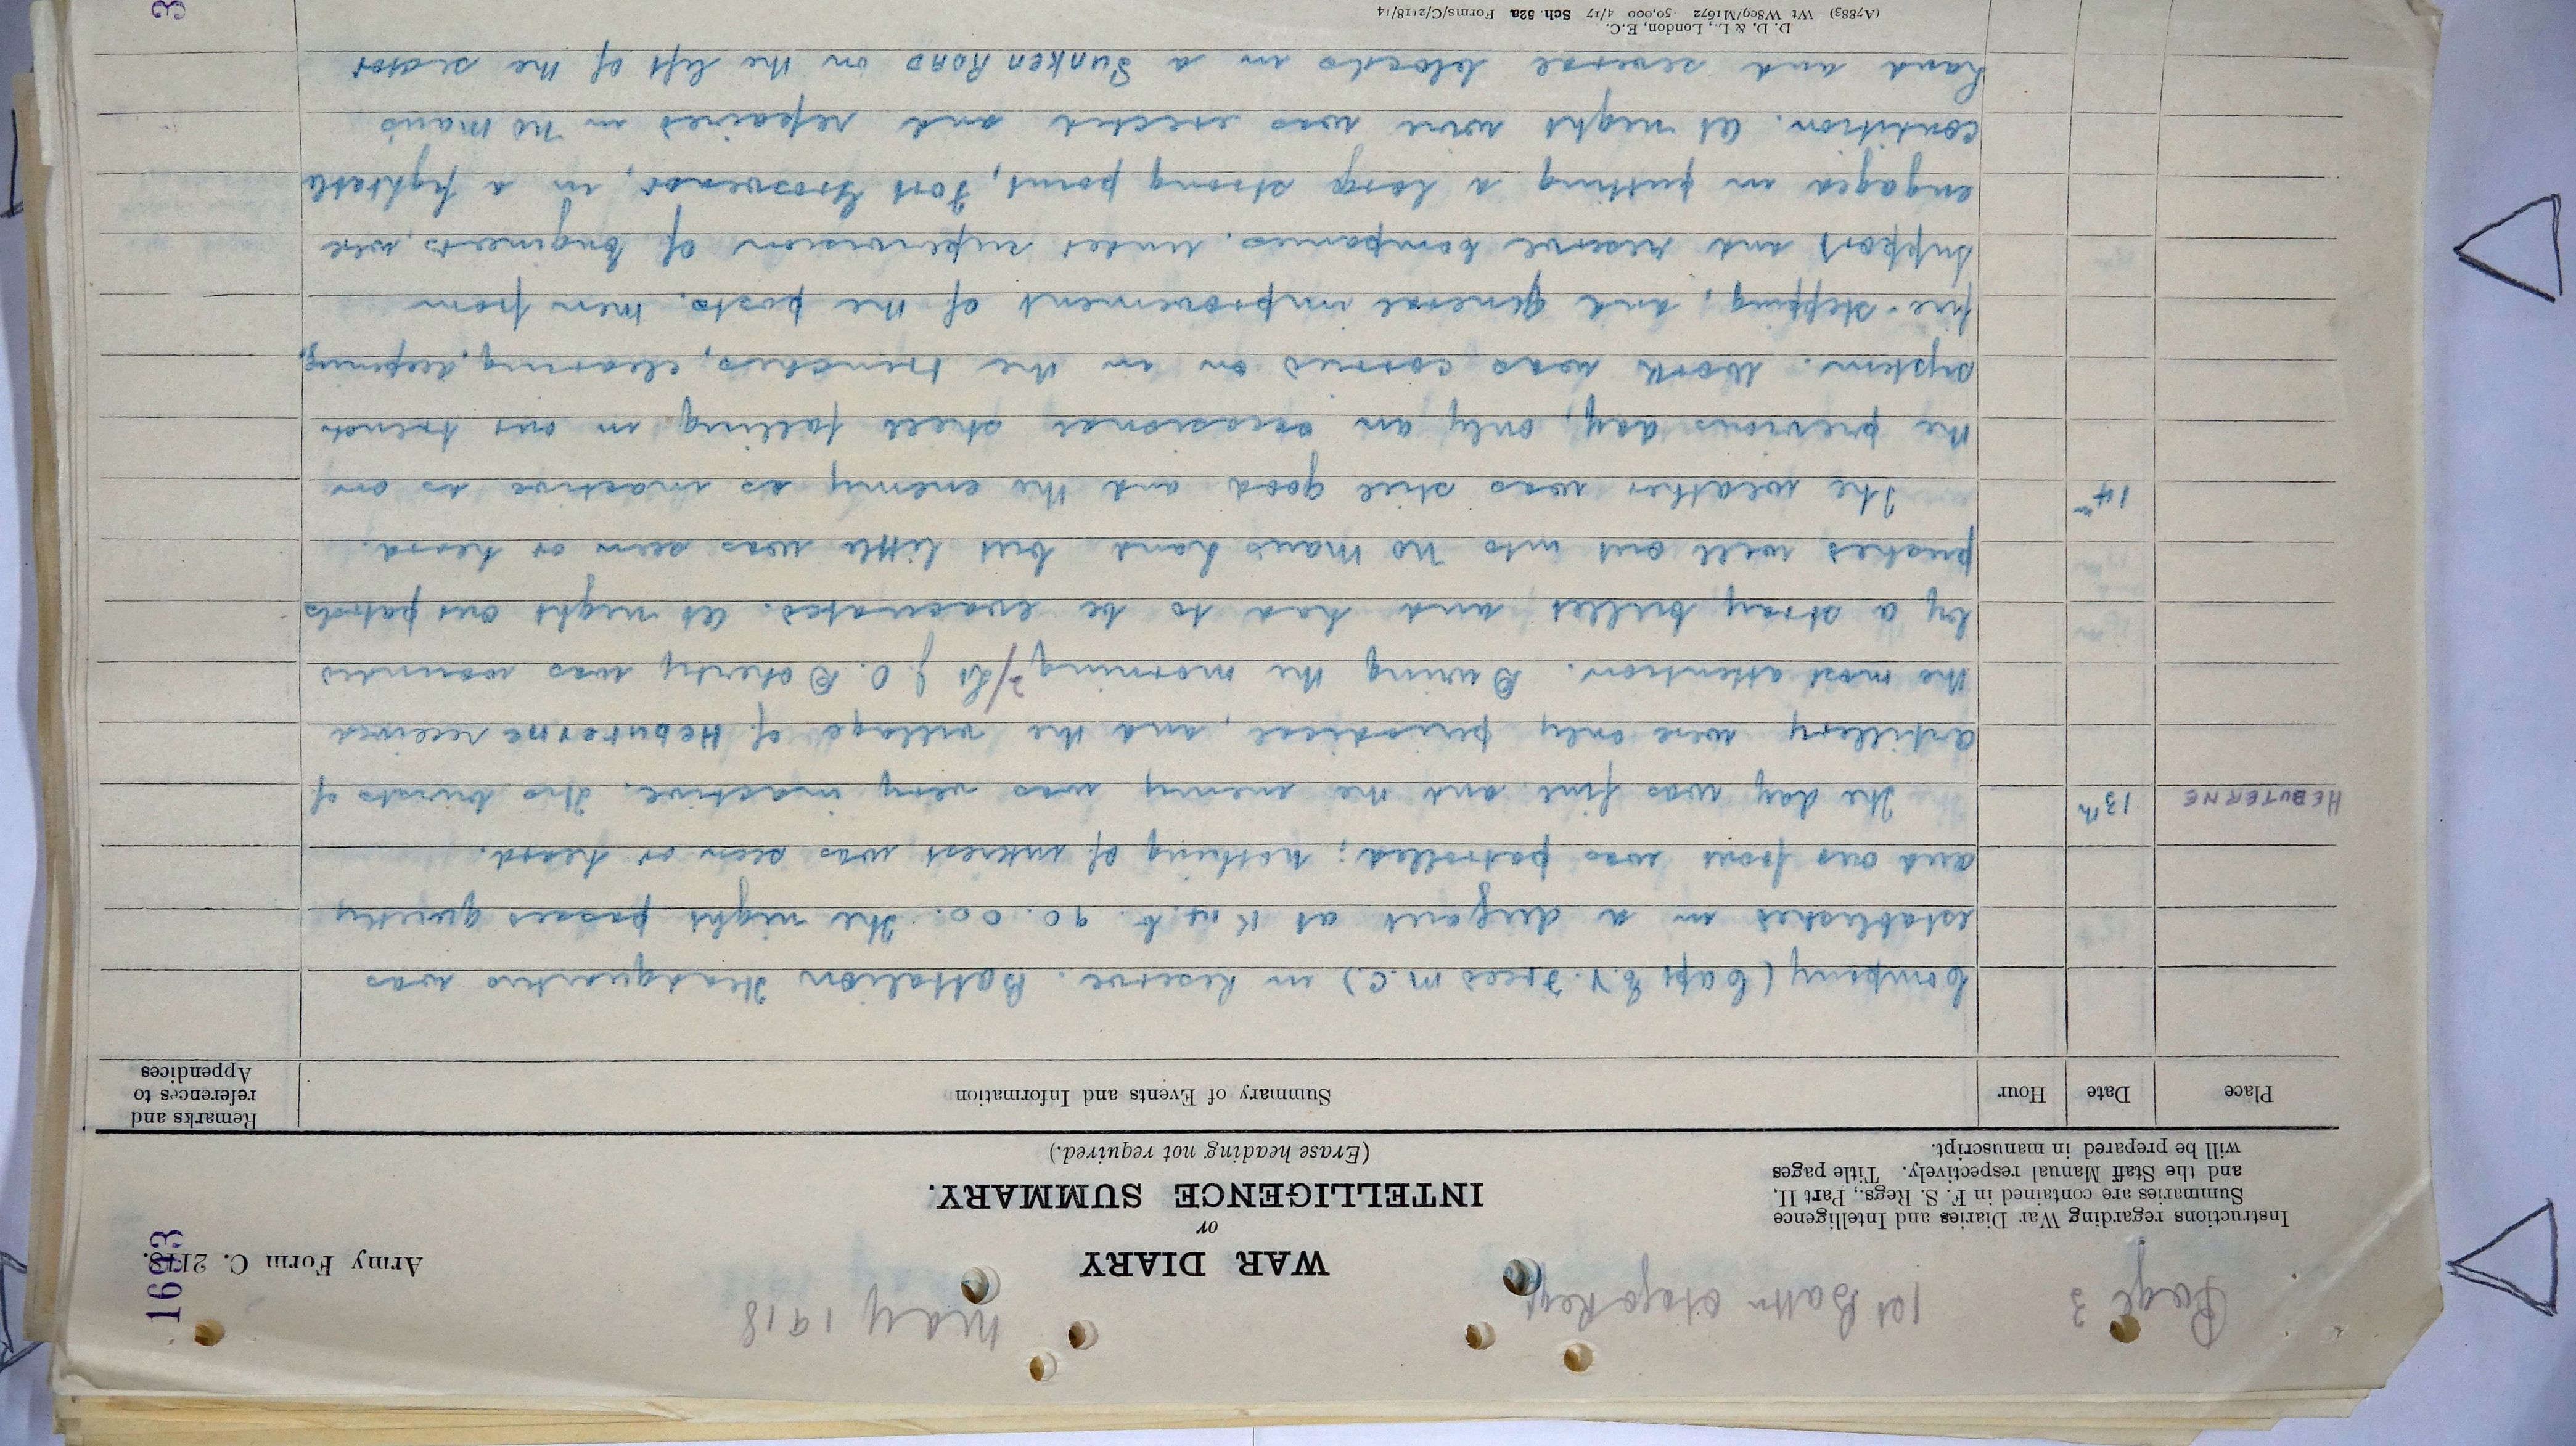 Page 3
1st Battn Otago Regt
May 1918
Army Form C. 2118.
Instructions regarding War Diaries and Intelligence
Summaries are contained in F. S. Regs., Part II.
and the Staff Manual respectively. Title pages
will be prepared in manuscript.
WAR DIARY
or
INTELLIGENCE SUMMARY.
(Erase heading not required.)
Place
Date
Hour
Summary of Events and Information
Remarks and
references to
Appendices
Company (Capt E.V. Freed M.C.) in Reserve. Battalion Headquarters was
established in a dugout at K 14. b. 90. 00. The night passed quietly
and our front was patrolled; nothing of interest was seen or heard.
HEBUTERNE 13th The day was fine and the enemy was very inactive. His bursts of
artillery were only periodical, and the village of HEBUTERNE received
the most attention. During the morning 2/Lt J. O. Doherty was wounded
by a stray bullet and had to be evacuated. At night our patrols
pushed well out into No Mans Land but little was seen or heard.
14th The weather was still good and the enemy as inactive as on
the previous day, only an occasional shell falling in our trench
system. Work was carried on in the trenches, clearing, deepening,
fire-stepping, and general improvement of the posts. Men from
support and reserve companies, under supervision of Engineers, were
engaged in putting a large strong point, Fort Grosvenor, in a fightable
condition. At night wire was erected and repaired in No Mans
Land and several blocks in a SUNKEN ROAD on the left of the sector
(A7883) Wt W809/M1672 50,000 4/17 Sch. 52a Forms/C/2118/14
D. D. & L., London, E.C.
3